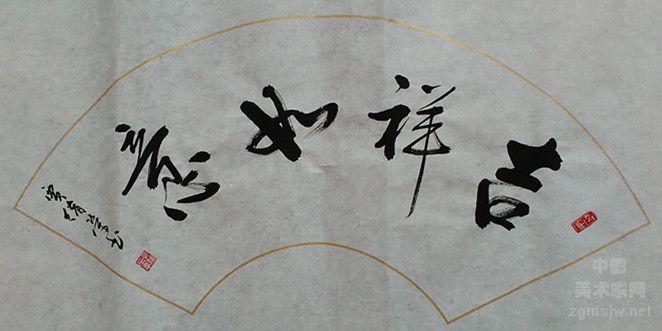 吉祥如意
中国
美术家网
zgmsjw.net